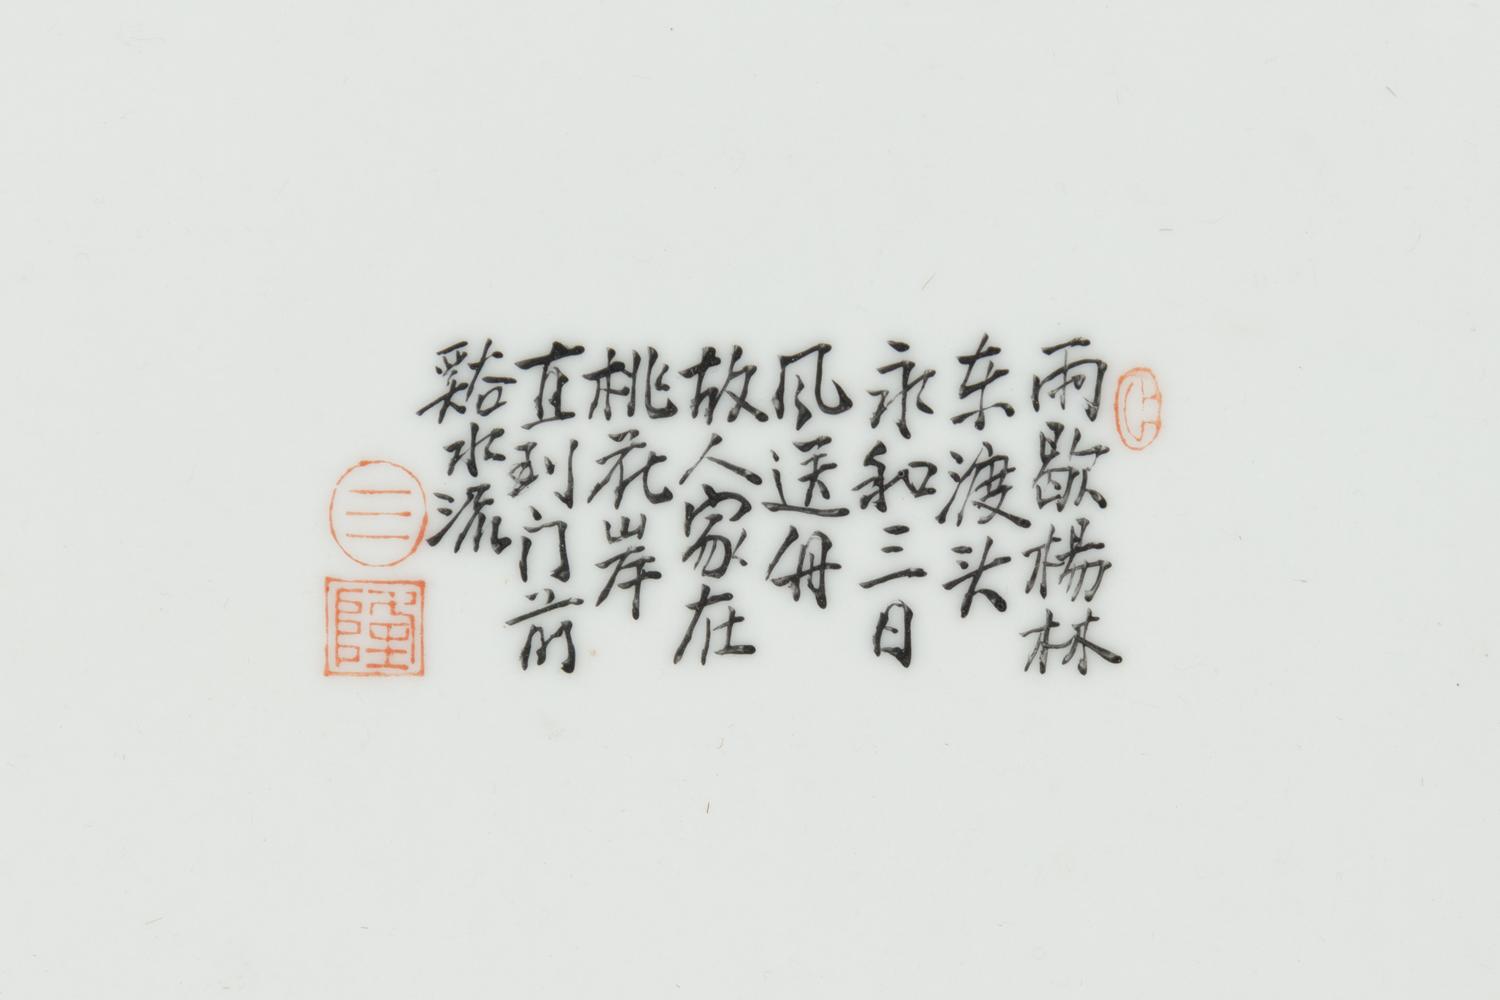 雨歇楊林
东渡头
永和三日
风送舟
故人家在
桃花岸
直到门前
谿水流
三
隆